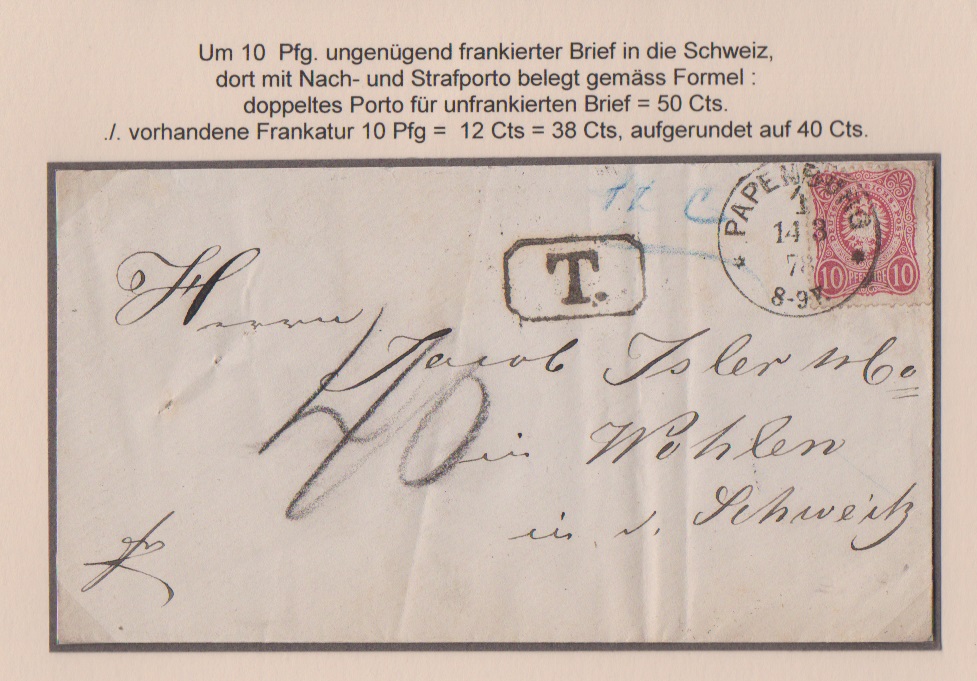 Um 10 Pfg. ungenügend frankierter Brief in die Schweiz,
dort mit Nach- und Strafporto belegt gemäss Formel :
doppeltes Porto für unfrankierten Brief = 50 Cts.
./. vorhandene Frankatur 10 Pfg = 12 Cts = 38 Cts, aufgerundet auf 40 Cts.
PAPENBURG
1
14 3
78
8-9V
10 PFENNIGE 10
T.
Herrn
Jacob Isler & Co
40
in Wohlen
in d. Schweitz